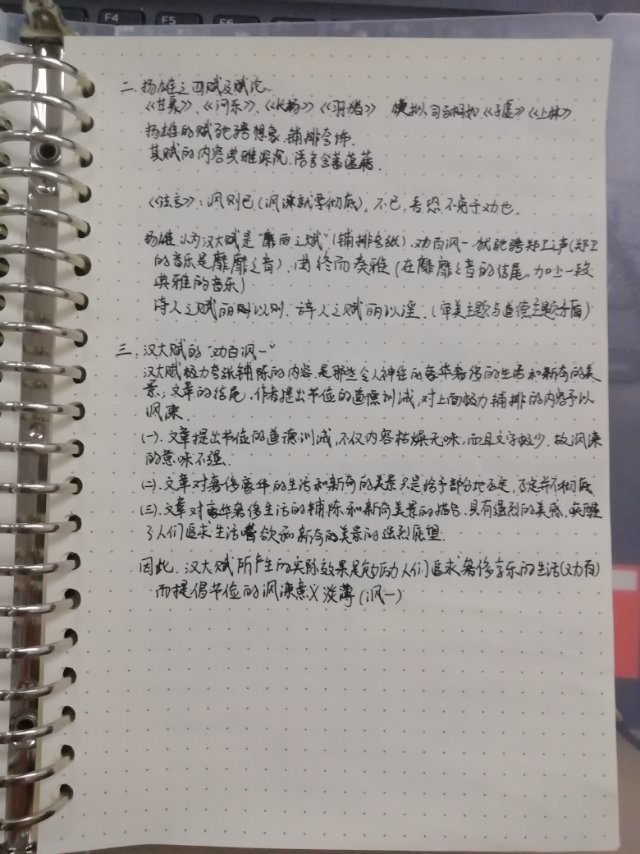 F4
F5
F6
二、扬雄之四赋及赋论
《甘泉》、《河东》、《长杨》《羽猎》 模拟司马相如《子虚》《上林》
扬雄的赋驰骋想象，铺排夸饰
其赋的内容典雅深沉，语言含蓄蕴藉.
《法言》：讽则已(讽谏就要彻底)，不已，吾恐不免于劝也.
扬雄认为汉大赋是"靡丽之赋"(铺排夸张)，劝百讽一，犹驰骋郑卫之声(郑卫
的音乐是靡靡之音)，曲终而奏雅(在靡靡之音的结尾，加上一段
典雅的音乐)
诗人之赋丽以则，辞人之赋丽以淫.(审美主题与道德主题矛盾)
三、汉大赋的"劝百讽一"
汉大赋极力夸张铺陈的内容，是那些令人神往的豪华奢侈的生活和新奇的美
景；文章的结尾，作者提出节俭的道德训诫，对上面极力铺排的内容予以
讽谏.
(一).文章提出节俭的道德训诫，不仅内容枯燥无味，而且文字较少，故讽谏
的意味不强.
(二).文章对奢侈豪华的生活和新奇的美景只是给予部分地否定，否定并不彻底
(三).文章对豪华奢侈生活的铺陈和新奇美景的描写，具有强烈的美感，唤醒
了人们追求生活嗜欲和新奇的美景的强烈愿望.
因此，汉大赋所产生的实际效果是鼓励人们追求奢侈享乐的生活(劝百)
而提倡节俭的讽谏意义淡薄(讽一)